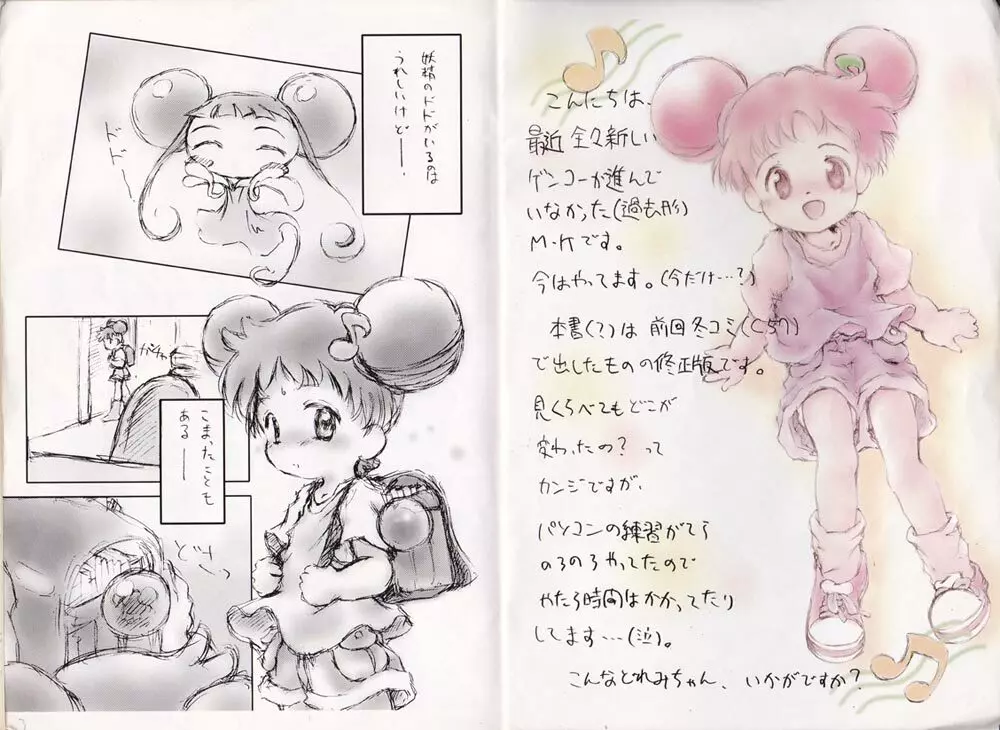 妖精のドドがいるのは
うれしいけど――.
ドドー
ガチャ
こまったことも
ある――
どけっ
こんにちは、
最近 全々新しい
ゲンコーが進んで
いなかった(過去形)
M・Kです。
今はやってます。(今だけ…?)
本書(?)は 前回冬コミ(C57)
で出したものの修正版です。
見くらべてもどこが
変わったの? って
カンジですが、
パソコンの練習がてら
のろのろやってたので
やたら時間はかかってたり
してます…(泣)。
こんなどれみちゃん、いかがですか?